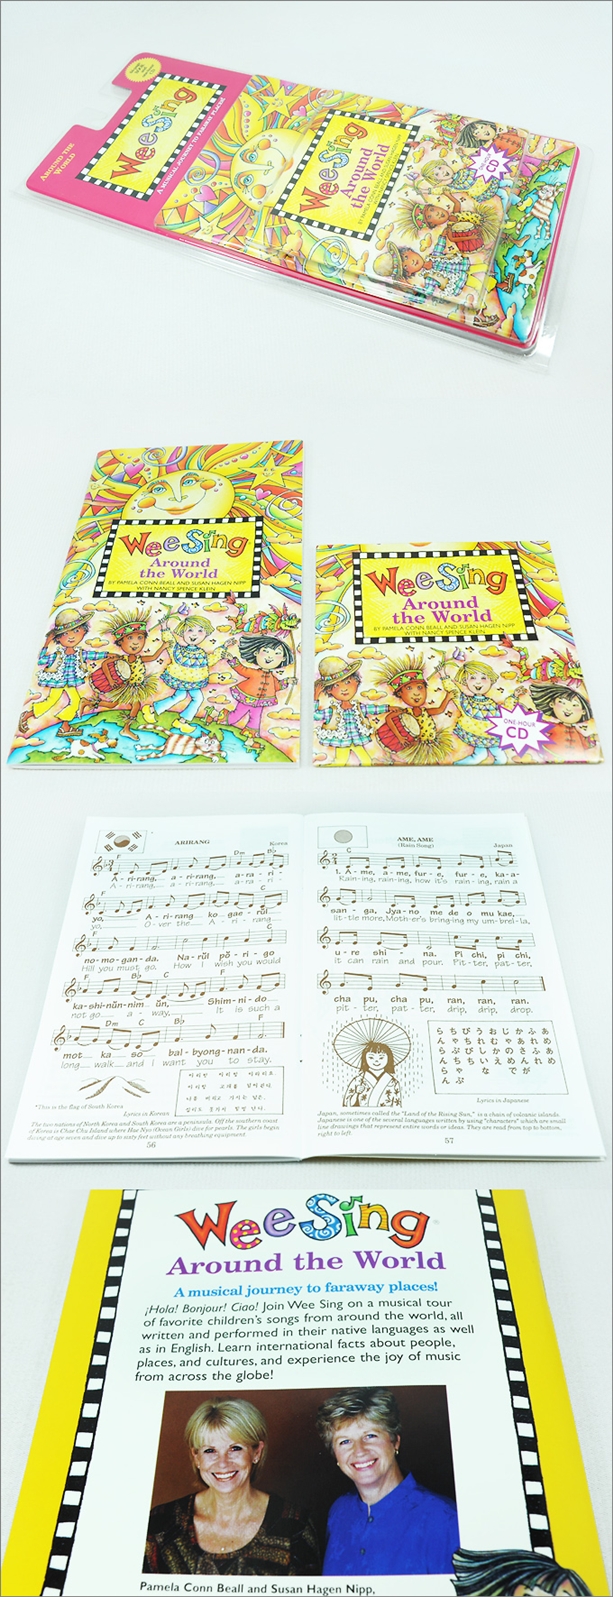 AROUND THE
WORLD
Wee Sing
A MUSICAL JOURNEY TO FARAWAY PLACES!
Wee Sing
Around
the World
ONE-HOUR
CD
Wee Sing
Around
the World
BY PAMELA CONN BEALL AND SUSAN HAGEN NIPP
WITH NANCY SPENCE KLEIN
Wee Sing
Around
the World
BY PAMELA CONN BEALL AND SUSAN HAGEN NIPP
WITH NANCY SPENCE KLEIN
ONE-HOUR
CD
ARIRANG
Korea
F Dm Bb
A - ri-rang, a-ri-rang, a-ra-ri-
A - ri-rang, a-ri-rang, a-ra-ri-
F C
yo, A-ri-rang ko-gae-rŭl
yo, O-ver the A-ri-rang
F C
no-mo-gan-da. Na-rŭl pŏ-ri-go
Hill you must go. How I wish you would
F Bb C F
ka-shi-nŭn-nim ŭn, Shim-ni-do
not go a-way, It is such a
Dm C Bb F
mot ka-sŏ bal-byong-nan-da.
long walk and I want you to stay.
*This is the flag of South Korea
Lyrics in Korean
The two nations of North Korea and South Korea are a peninsula. Off the southern coast
of Korea is Chae Chu Island where Hae Nyo (Ocean Girls) dive for pearls. The girls begin
diving at age seven and dive up to sixty feet without any breathing equipment.
56
AME, AME
(Rain Song)
Japan
C
1. A-me, a-me, fu-re, fu-re, ka-a-
Rain-ing, rain-ing, how it's rain-ing, rain a
san-ga, Jya-no me de o mu kae,
lit-tle more, Moth-er's bring-ing my um-brel-la,
u-re shi-na. Pi chi, pi chi,
it can rain and pour. Pit-ter, pat-ter,
cha pu, cha pu, ran, ran, ran.
pit-ter, pat-ter, drip, drip, drop.
Lyrics in Japanese
Japan, sometimes called the "Land of the Rising Sun," is a chain of volcanic islands.
Japanese is one of the several languages written by using "characters" which are small
line drawings that represent entire words or ideas. They are read from top to bottom,
right to left.
57
Wee Sing
Around the World
A musical journey to faraway places!
¡Hola! Bonjour! Ciao! Join Wee Sing on a musical tour
of favorite children's songs from around the world, all
written and performed in their native languages as well
as in English. Learn international facts about people,
places, and cultures, and experience the joy of music
from across the globe!
Pamela Conn Beall and Susan Hagen Nipp,